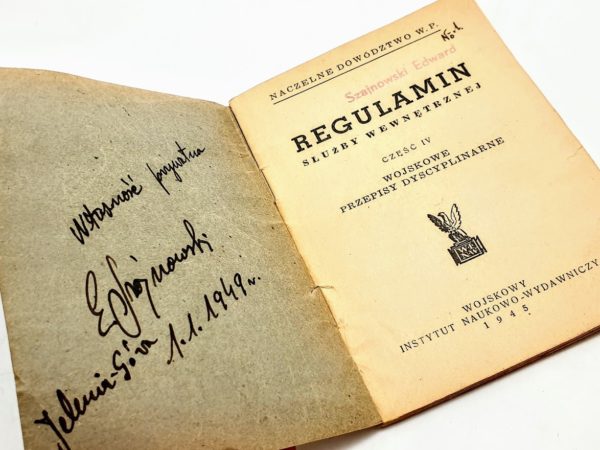 Własność prywatna
ESzajnowski
Jelenia-Góra 1.1.1949r.
NACZELNE DOWÓDZTWO W.P.
No. 1.
Szajnowski Edward
REGULAMIN
SŁUŻBY WEWNĘTRZNEJ
CZĘŚĆ IV
WOJSKOWE
PRZEPISY DYSCYPLINARNE
WOJSKOWY
INSTYTUT NAUKOWO-WYDAWNICZY
1945